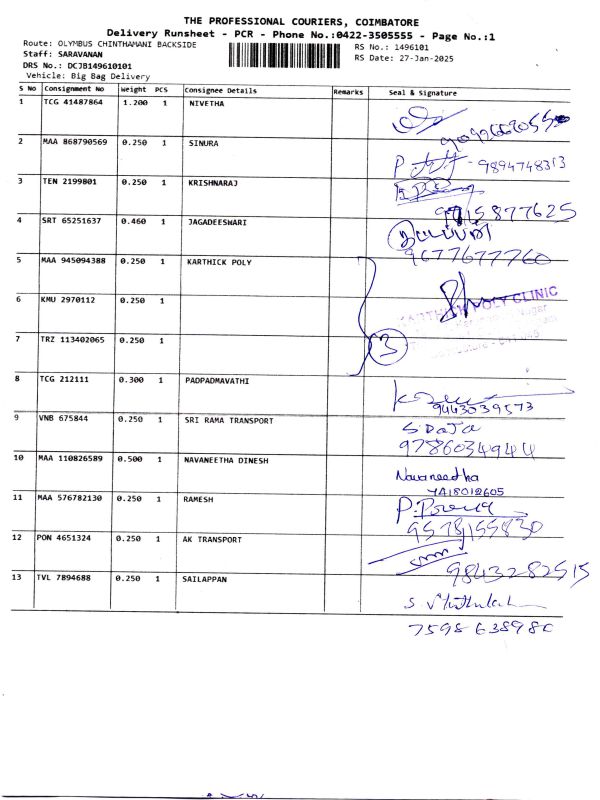 THE PROFESSIONAL COURIERS, COIMBATORE
Delivery Runsheet - PCR - Phone No.:0422-3505555 - Page No.:1
Route: OLYMBUS CHINTHAMANI BACKSIDE
RS No.: 1496101
Staff: SARAVANAN
RS Date: 27-Jan-2025
DRS No.: DCJB149610101
Vehicle: Big Bag Delivery
S No Consignment No Weight PCS Consignee Details Remarks Seal & Signature
1 TCG 41487864 1.200 1 NIVETHA
2 MAA 868790569 0.250 1 SINURA
9894748313
3 TEN 2199801 0.250 1 KRISHNARAJ
9715877625
4 SRT 65251637 0.460 1 JAGADEESWARI
9677677760
5 MAA 945094388 0.250 1 KARTHICK POLY
KARTHICK POLY CLINIC
6 KMU 2970112 0.250 1
7 TRZ 113402065 0.250 1
3
8 TCG 212111 0.300 1 PADPADMAVATHI
9443039573
9 VNB 675844 0.250 1 SRI RAMA TRANSPORT
9786034944
10 MAA 110826589 0.500 1 NAVANEETHA DINESH
Navaneetha
11 MAA 576782130 0.250 1 RAMESH
9578155830
12 PON 4651324 0.250 1 AK TRANSPORT
9843282515
13 TVL 7894688 0.250 1 SAILAPPAN
7598638980